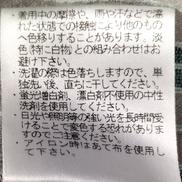 着用中の摩擦や、雨や汗などで濡
れた状態での接触により他のもの
へ色移りすることがあります。淡
色(特に白物)との組み合わせはお
避け下さい。
・洗濯の際は色落ちしますので、単
独洗い後、直ちに干してください。
・蛍光増白剤、漂白剤不使用の中性
洗剤を使用してください。
・日光や照明等の強い光を長時間受
けることで変色する恐れがありま
すのでご注意ください。
・アイロン時はあて布を使用し
て下さい。